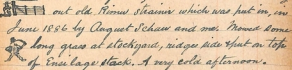 out old Rimu strainer which was put in, in
June 1886 by August Schaw and me. Mowed some
long grass at stockyard, ridge side & put on top
of Ensilage stack. A very cold afternoon.